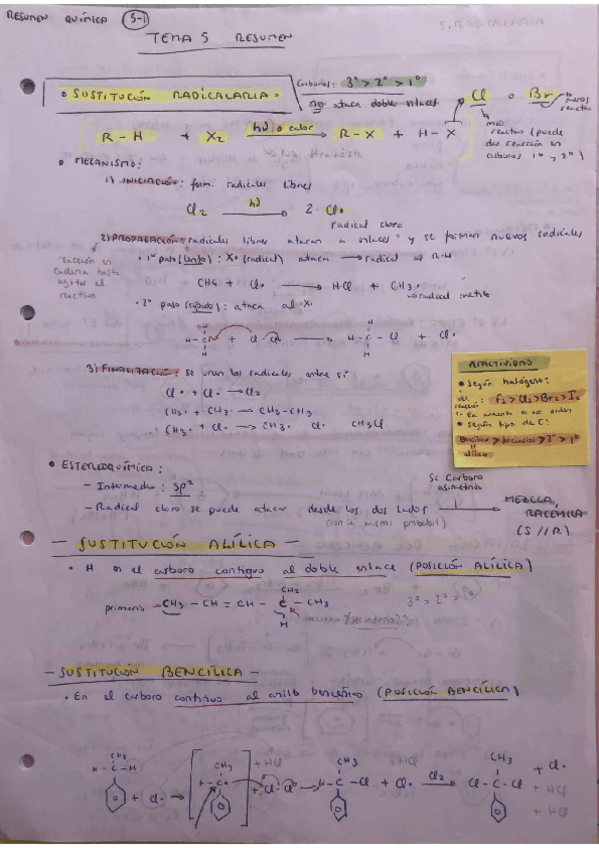 RESUMEN QUÍMICA 5-1
TEMA 5 RESUMEN
• SUSTITUCIÓN RADICALARIA •
Carbonos: 3º > 2º > 1º
no ataca dobles enlaces
Cl o Br
menos reactivo
más reactivo (puede dar reacción en carbonos 1º y 2º)
R-H + X2 hν o calor → R-X + H-X
• MECANISMO:
1) INICIACIÓN: form. radicales libres
Cl2 hν → 2 · Cl•
radical cloro
2) PROPAGACIÓN: radicales libres atacan a enlaces y se forman nuevos radicales
reacción en cadena hasta agotar el reactivo
• 1er paso (lento): X• (radical) ataca → radical al R-H
CH4 + Cl• → HCl + CH3•
radical metilo
• 2º paso (rápido): ataca al X•
+ Cl-Cl → + Cl•
3) FINALIZACIÓN: se unen los radicales entre sí
Cl• + Cl• → Cl2
CH3• + CH3• → CH3-CH3
CH3• + Cl• → CH3• Cl• CH3Cl
REACTIVIDAD
• Según halógeno:
vel. reacción: F2 > Cl2 > Br2 > I2
• Según tipo de C:
bencílico > terciarios > 2º > 1º
alílico
• ESTEREOQUÍMICA:
- Intermedio: sp2
- Radical cloro se puede atacar desde los dos lados
(con la misma probabil)
Si Carbono asimétrico
MEZCLA RACÉMICA
(S // R)
- SUSTITUCIÓN ALÍLICA -
• H en el carbono contiguo al doble enlace (POSICIÓN ALÍLICA)
primario CH3 - CH = CH - C - CH3
CH3
H
3º > 2º > 1º
- SUSTITUCIÓN BENCÍLICA -
• En el carbono contiguo al anillo bencénico (POSICIÓN BENCÍLICA)
CH3 CH3 + HCl CH3 + HCl CH3 + Cl•
H - C - H + Cl• → H - C• + Cl-Cl → H - C - Cl + Cl• Cl2 → Cl - C - Cl + HCl
+ HCl